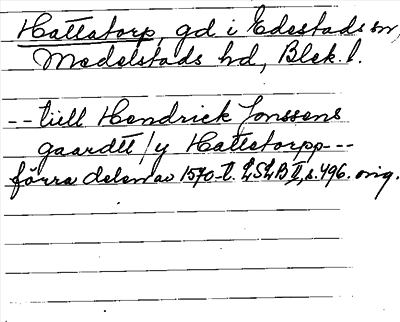 Hattatorp, gd i Edestads sn,
Medelstads hd, Blek. l.
-- tiill Hendrick Jonssens
gaardtt /y Hattetorpp---
förra delen av 1570-t. LSLB II, s. 496. orig.